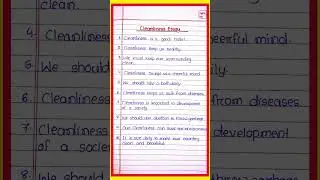 Cleanliness Essay
1. Cleanliness is a good habit.
2. Cleanliness keep us healthy.
3. We must keep our surrounding
clean.
4. Cleanliness brings us cheerful mind.
5. We should take a bath daily.
6. Cleanliness keeps us safe from diseases.
7. Cleanliness is important to development
of a society.
8. We should use dustbin to throw garbage.
9. Our cleanliness can save our environment
10. It is our duty to make our country
clean and beautiful.
clean.
4. Cleanliness
5. We should
6. Cleanliness
7. Cleanliness
of a socie
8.
cheerful mind.
daily.
from diseases.
development